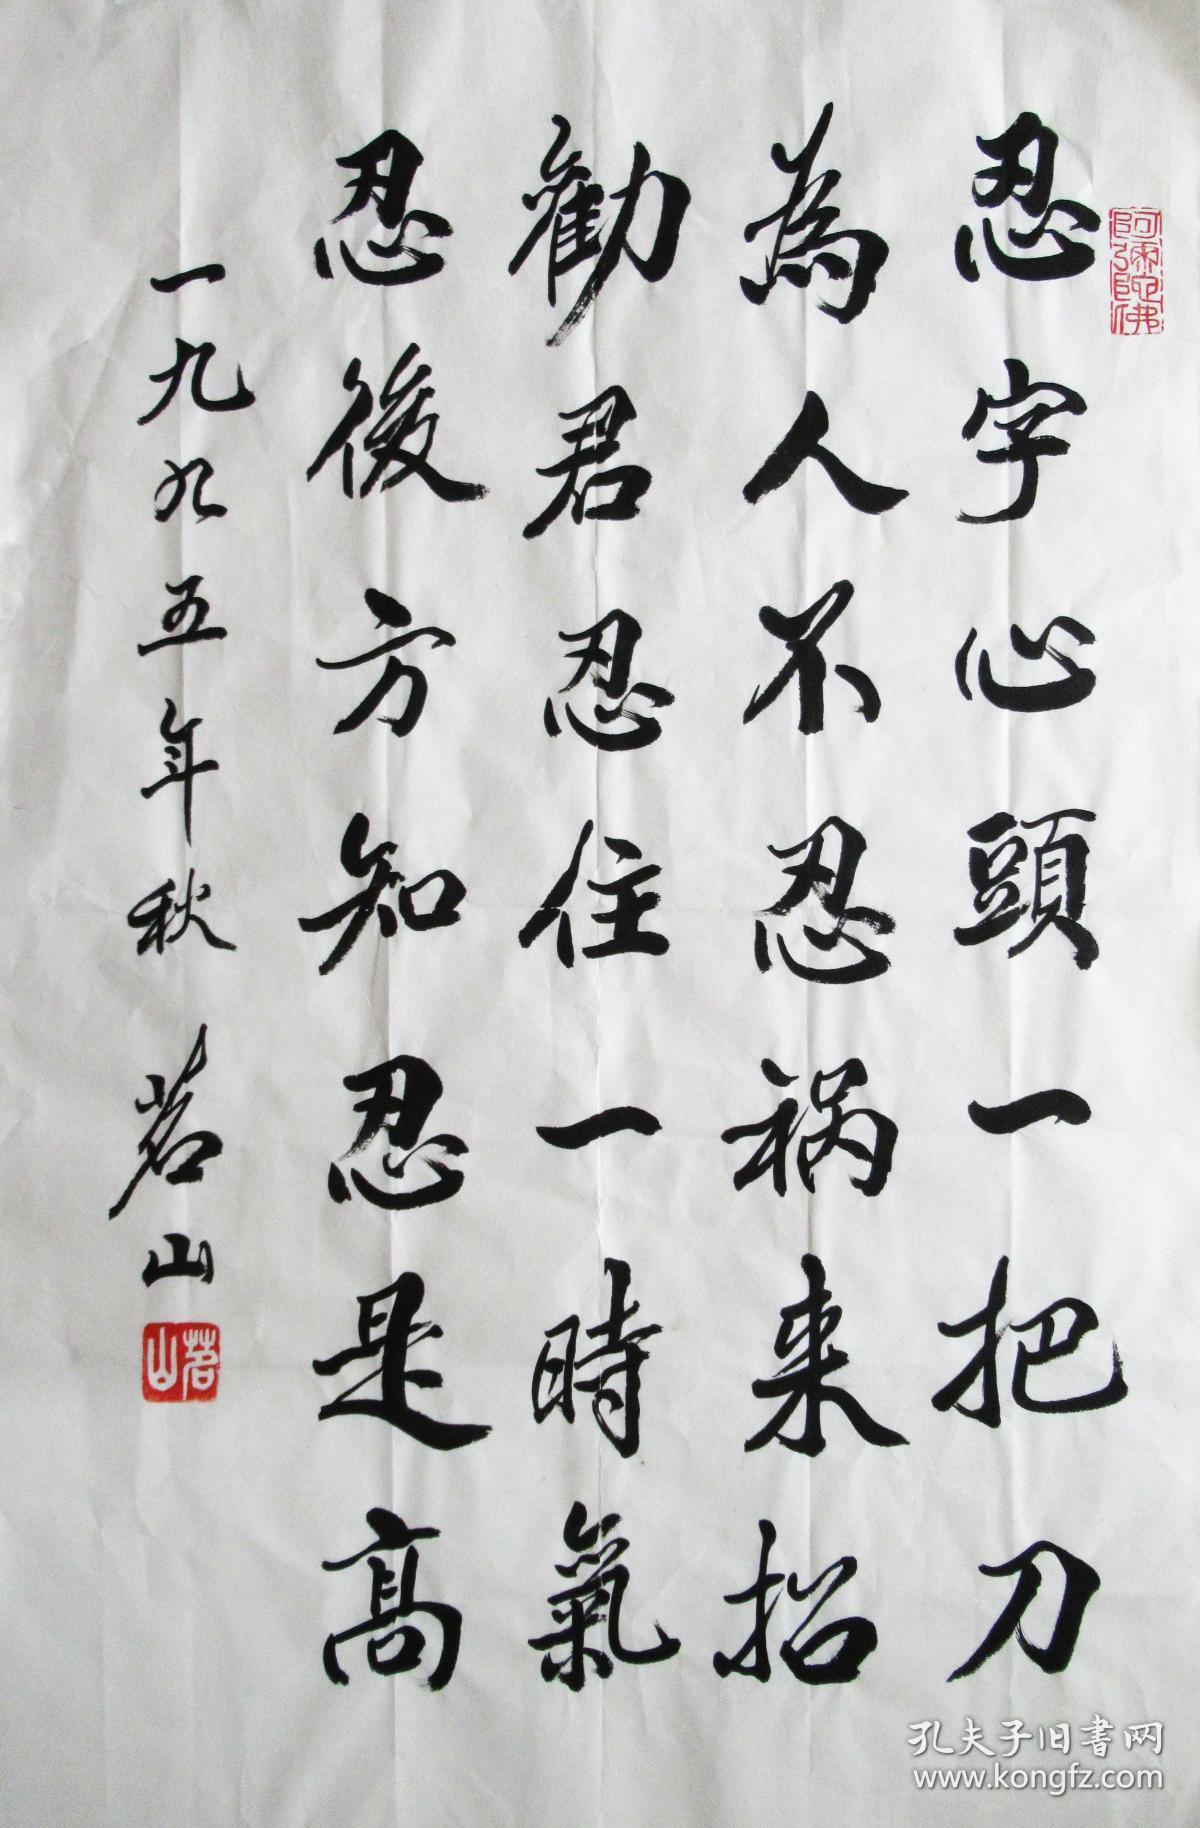 阿彌陀佛
忍字心頭一把刀
為人不忍祸来招
勸君忍住一時氣
忍後方知忍是高
一九九五年秋 茗山
茗山
孔夫子旧書网
www.kongfz.com